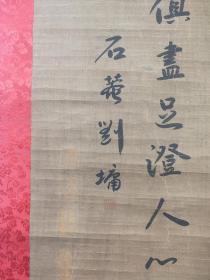 俱盡足澄人心
石菴劉墉